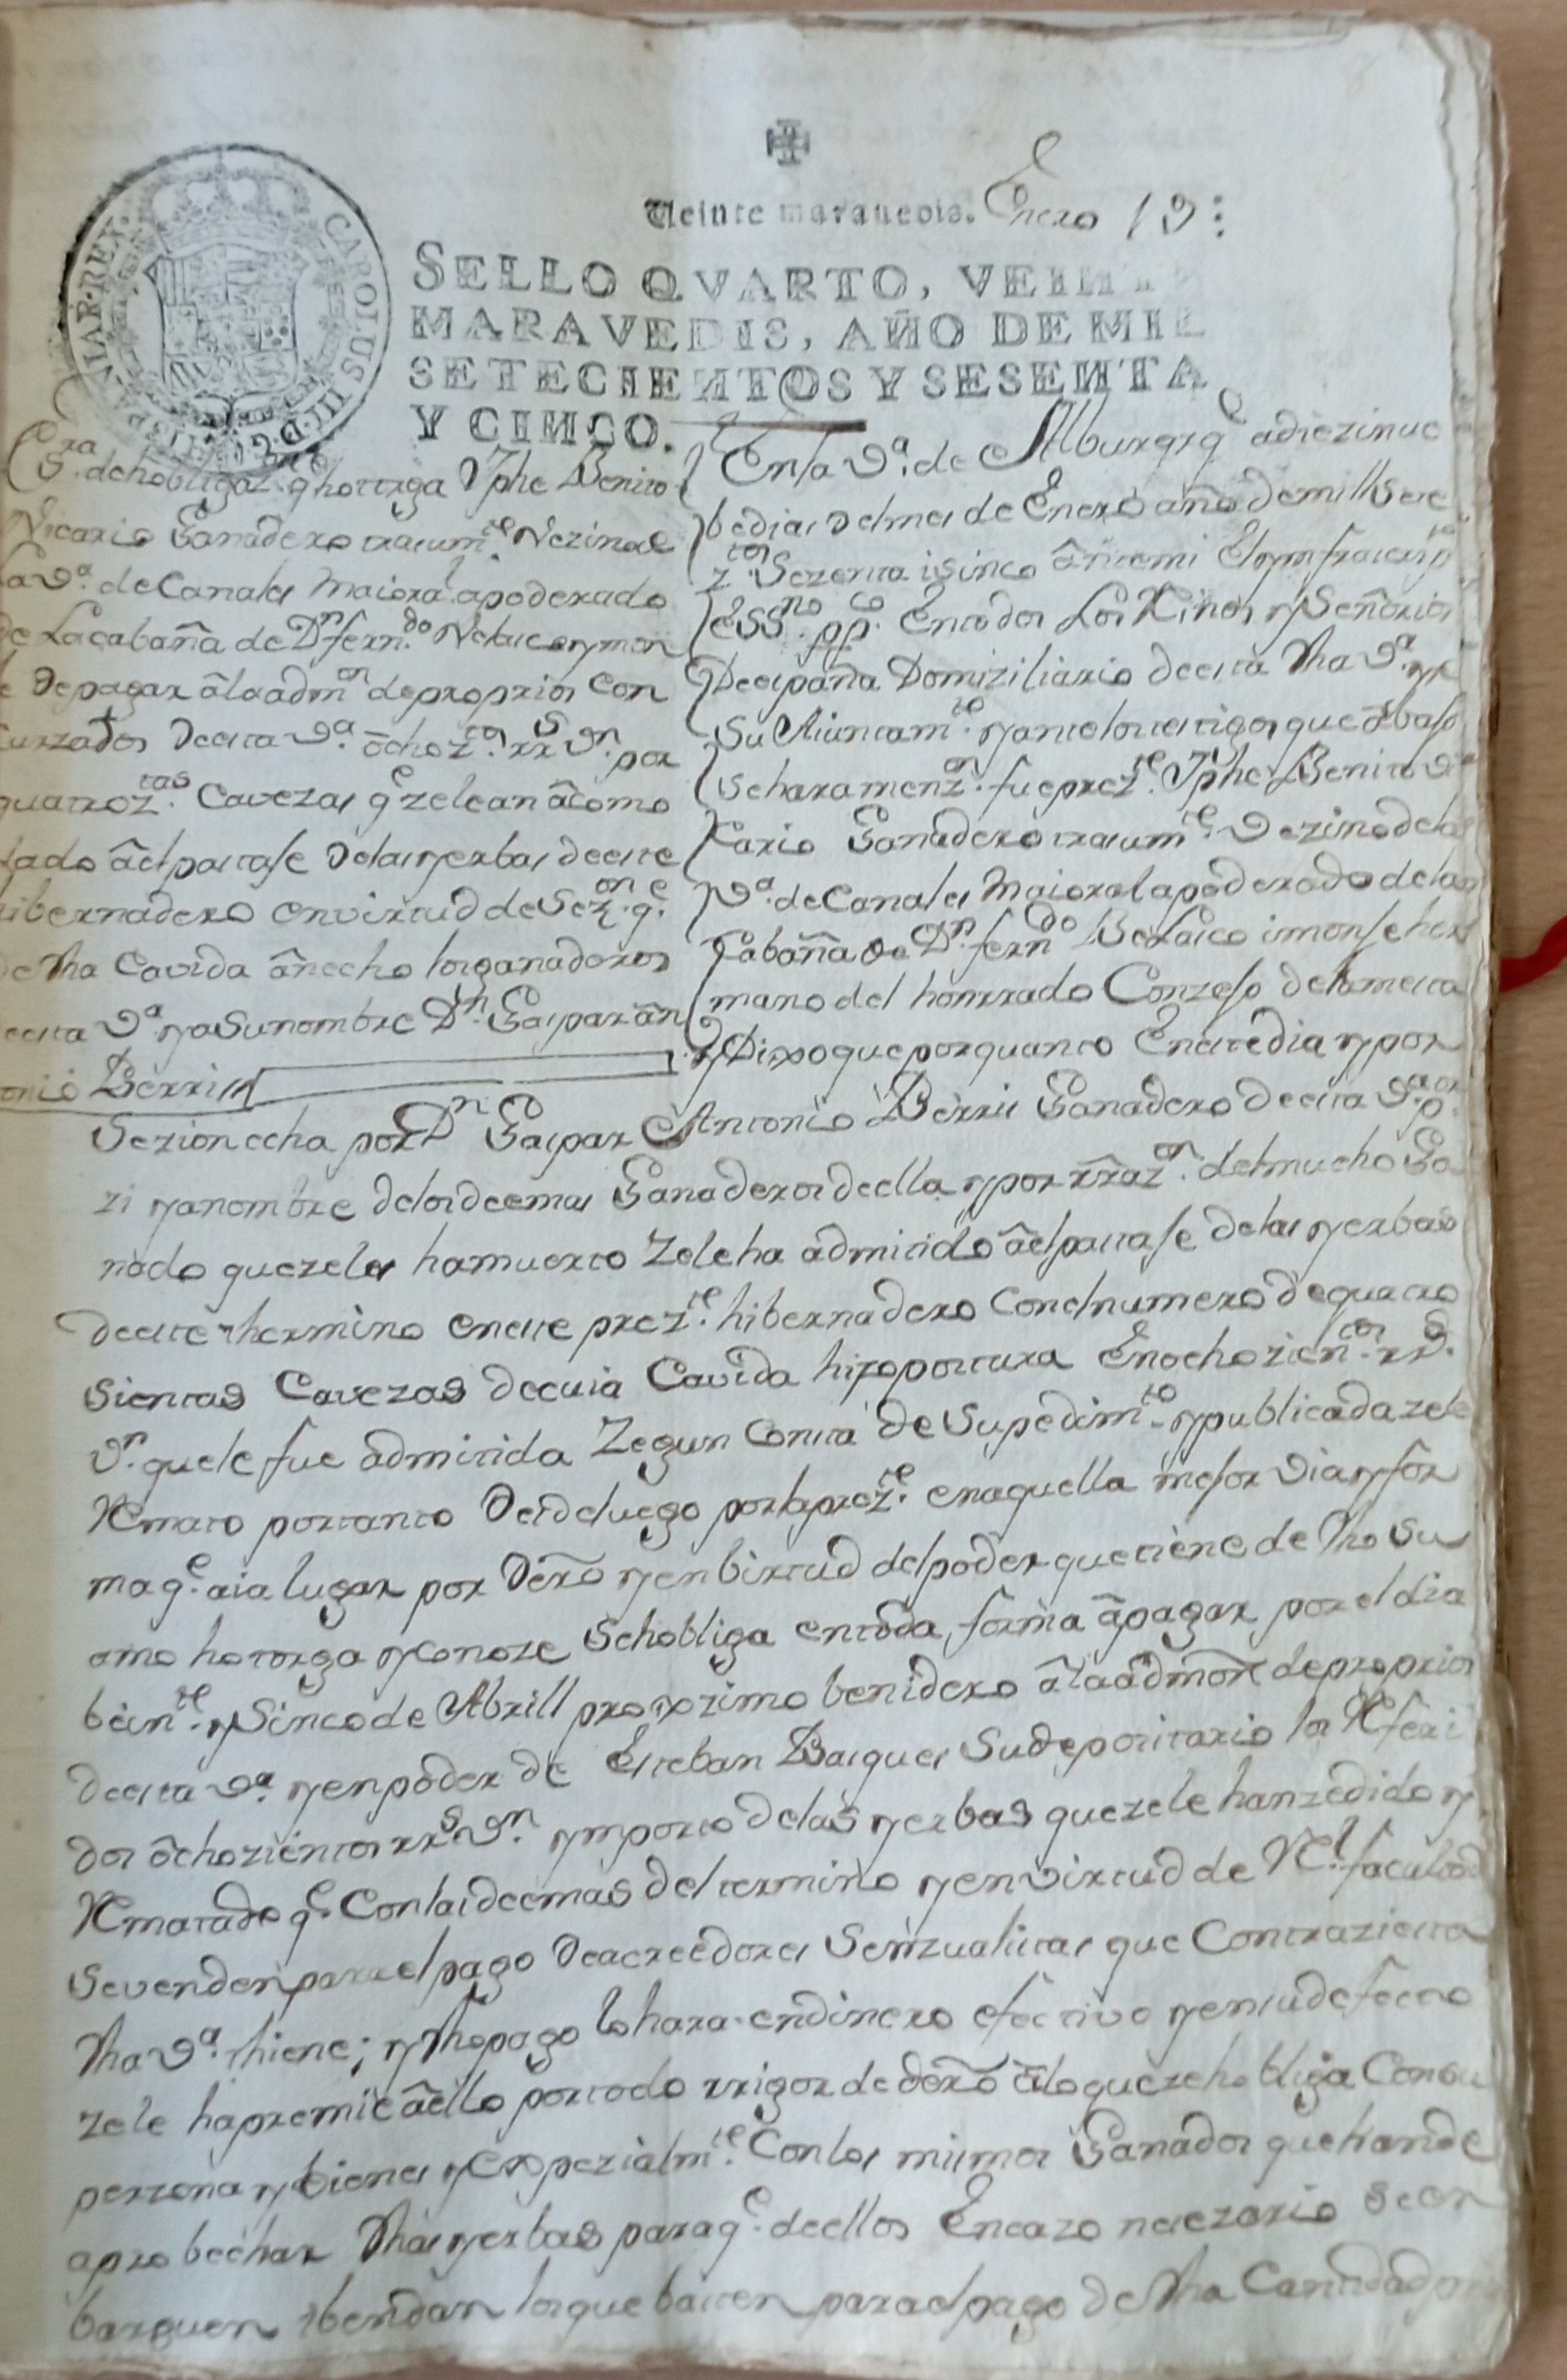 Veinte maravedis. Enero 19:
CAROLUS III. D. G. HISPANIAR. REX.
SELLO QVARTO, VEINTE
MARAVEDIS, AÑO DE MIL
SETECIENTOS Y SESENTA
Y CINCO.
Ess.ra de hobligaz.on q.e hotorga Jphe Benito
Vicario Ganadero trasum.te Vezino de
la V.a de Canales Maioral apoderado
de La cabaña de D.n fern.do Velasco y mon
se de pagar â la adm.on de proprios Con
curzados de esta V.a ôchoz.tos rr.s V.n por
quatroz.tas Cavezas q.e zele an âcomo
dado âel pastaje de las yerbas de este
hibernadero en virtud de Sez.on q.e
de dha Cavida ân echo los ganaderos
de esta V.a y a Su nombre D.n Gaspar ân
tonio Berris
En la V.a de Alburqrq.e a diez i nue
be dias del mes de Enero año de mill Sete
z.tos Sezenta i sinco ânte mi El ynfraescrip.to
eSS.no pp.co En todos Los Reinos y Señorios
De españa Domiziliario de esta dha V.a y de
Su Aiuntam.to y ante los testigos que âbajo
se hara menz.on fue prez.te Jphe Benito Vi
cario Ganadero trasum.te Vezino de la
V.a de Canales Maioral apoderado de la
Cabaña de D.n fern.do Belasco i monse her
mano del honrrado Conzejo de la mesta
y Dixo que por quanto En este dia y por
Sezion echa por D.n Gaspar Antonio Berris Ganadero de esta V.a p.or
zi y a nombre de los deemas Ganaderos de ella y por rraz.on del mucho Ga
nado que zeles ha muerto Zele ha admitido âel pastaje de las yerbas
de este thermino en este prez.te hibernadero Con el numero de quatro
Sientas Cavezas de cuia Cavida hizo postura En ochozien.tos rr.s
V.n que le fue admitida Zegun Consta de Su pedim.to y publicada zele
Remato por tanto Desde luego por la prez.te en aquella mejor Via y for
ma q.e aia lugar por derõ y en birtud del poder que tiene de dho Su
amo hotorga y Conoze Se hobliga en toda forma â pagar por el dia
bein.te y Sinco de Abrill proximo benidero â la âdmon de proprios
de esta V.a y en poder de Esteban Basques Su depositario los Referi
dos ôchozientos rr.s V.n ymporto de las yerbas que zele han zedido y
Rematado q.e Con las deemas del termino y en virtud de R.l facultad
Se venden para el pago de acreedores Senzualistas que Contra zi esta
dha V.a thiene; y dho pago lo hara en dinero efectivo y en su defecto
zele hapremie â ello por todo rrigor de derõ â lo que ze hobliga Con su
persona y bienes y Expezialm.te Con los mismos Ganados que han de
aprobechar dhas yerbas para q.e de ellos En cazo nesezario Se en
barguen i bendan los que basten para el pago de dha Cantidad por